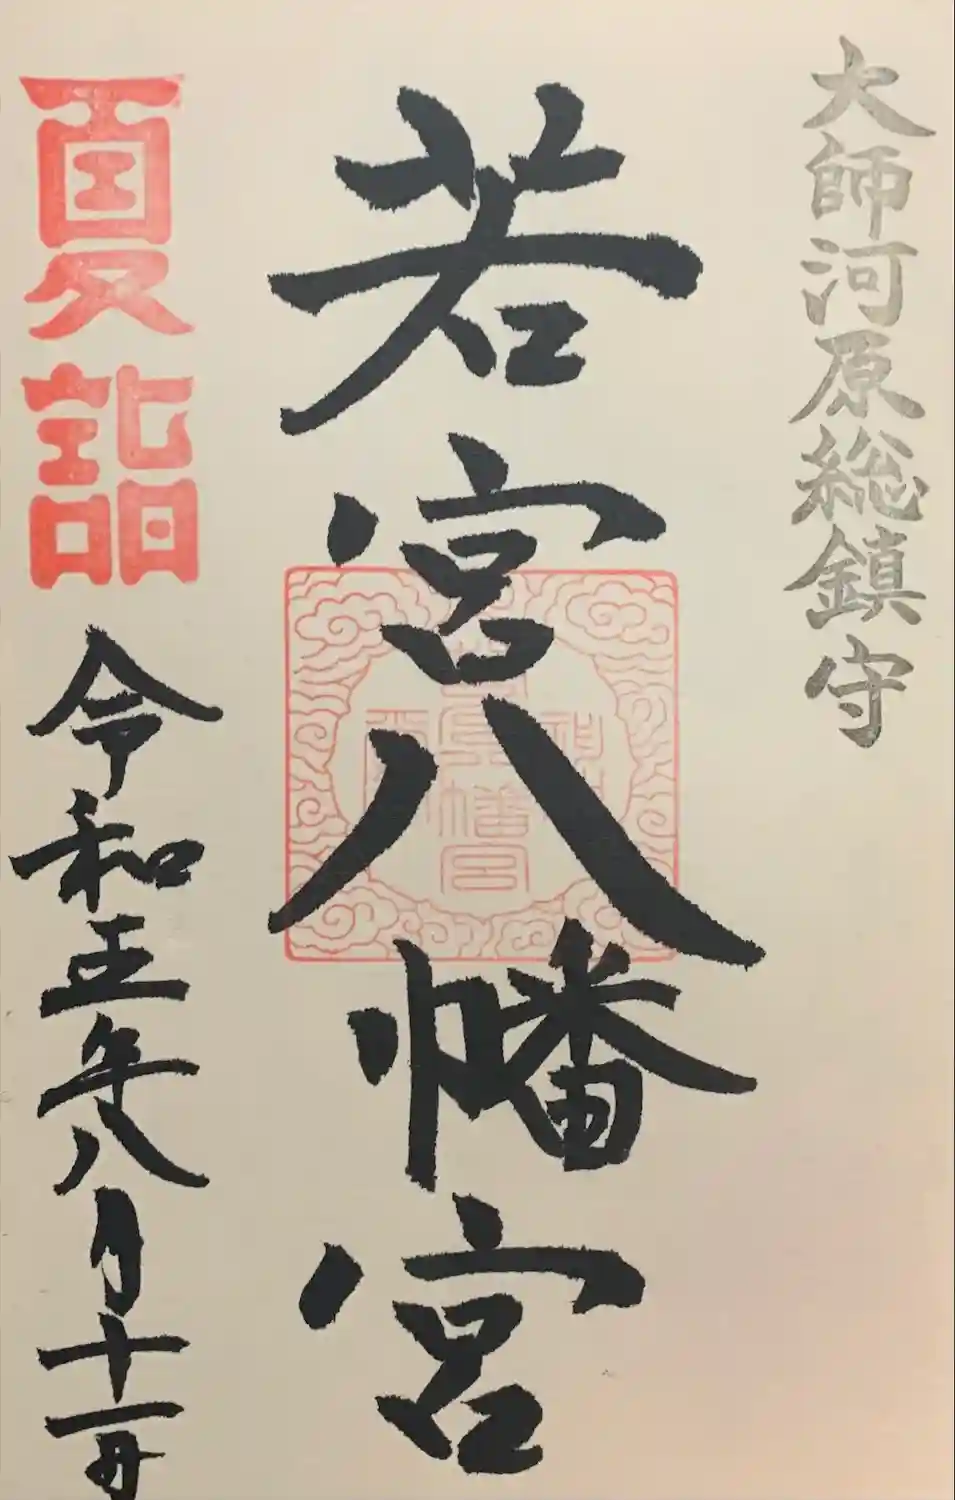 大師河原総鎮守
若宮八幡宮
夏詣
令和五年八月十一日